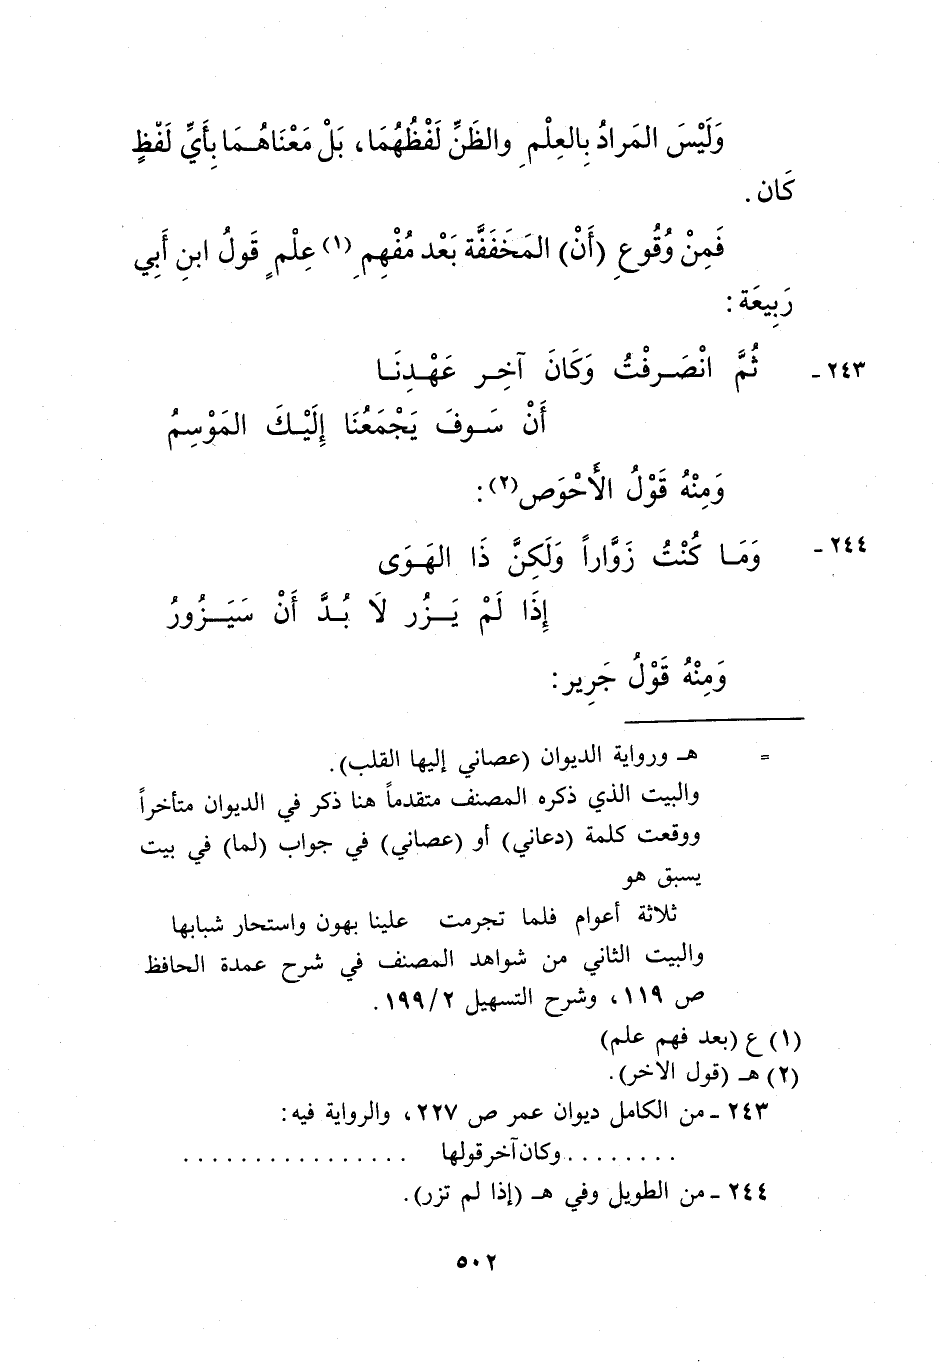 وَلَيْسَ المَرادُ بِالعِلْمِ والظَنِّ لَفْظُهُمَا، بَلْ مَعْنَاهُمَا بِأَيِّ لَفْظٍ
كَان .
فَمِنْ وُقُوعِ (أَنْ) المَخَفَفَّة بَعْد مُفْهِمِ (١) عِلْمٍ قَولُ ابنِ أَبِي
رَبِيعَة :
٢٤٣ - ثُمَّ انْصَرفْتُ وَكَانَ آخِر عَهْدِنَا
أَنْ سَوفَ يَجْمَعُنَا إِلَيْكَ المَوْسِمُ
وَمِنْهُ قَوْلُ الأَحْوَص (٢) :
٢٤٤ - وَمَا كُنْتُ زَوَّاراً وَلَكِنَّ ذَا الهَوَى
إِذَا لَمْ يَزُر لَا بُدَّ أَنْ سَيَزُورُ
وَمِنْهُ قَوْلُ جَرِير :
= هـ ورواية الديوان (عصاني إليها القلب).
والبيت الذي ذكره المصنف متقدماً هنا ذكر في الديوان متأخراً
ووقعت كلمة (دعاني) أو (عصاني) في جواب (لما) في بيت
يسبق هو
ثلاثة أعوام فلما تجرمت علينا بهون واستحار شبابها
والبيت الثاني من شواهد المصنف في شرح عمدة الحافظ
ص ١١٩، وشرح التسهيل ١٩٩/٢ .
(١) ع (بعد فهم علم)
(٢) هـ (قول الاخر).
٢٤٣ - من الكامل ديوان عمر ص ٢٢٧، والرواية فيه:
. . . . . . . . وكان آخر قولها . . . . . . . . . . . . . . . .
٢٤٤ - من الطويل وفي هـ (إذا لم تزر).
٥٠٢